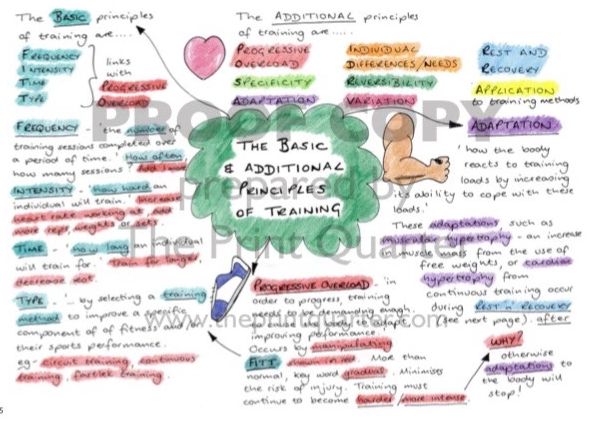 The BASIC principles
of training are.....
FREQUENCY
INTENSITY
TIME
TYPE
links
with
PROGRESSIVE
OVERLOAD
The ADDITIONAL principles
of training are.....
PROGRESSIVE
OVERLOAD
SPECIFICITY
ADAPTATION
INDIVIDUAL
DIFFERENCES/NEEDS
REVERSIBILITY
VARIATION
REST AND
RECOVERY
APPLICATION
to training methods
THE BASIC
& ADDITIONAL
PRINCIPLES
OF TRAINING
FREQUENCY - 'the number of
training sessions completed over
a period of time.' How often/
how many sessions? Add 1 more
INTENSITY - 'how hard an
individual will train. Increase
heart rate working at, add
more reps, weights or sets.
TIME - 'how long an individual
will train for. Train for longer
decrease rest.
TYPE - 'by selecting a training
method to improve a specific
component of of fitness and/or
their sports performance.
eg- circuit training, continuous
training, fartlek training.
ADAPTATION
'how the body
reacts to training
loads by increasing
its ability to cope with these
loads.'
These adaptations such as
muscular hypertrophy - an increase
in muscle mass from the use of
free weights, or cardiac
hypertrophy from
continuous training occur
during REST 'n' RECOVERY
(see next page). after
PROGRESSIVE OVERLOAD - 'in
order to progress, training
must be demanding enough
to cause the body to adapt,
improving performance.'
Occurs by manipulating
FITT shown in red. More than
normal, key word gradual. Minimises
the risk of injury. Training must
continue to become harder/more intense.
WHY?
otherwise
adaptations to
the body will
stop!
PROOF COPY
prepared by
The Print Quarter
www.theprintquarter.com
5